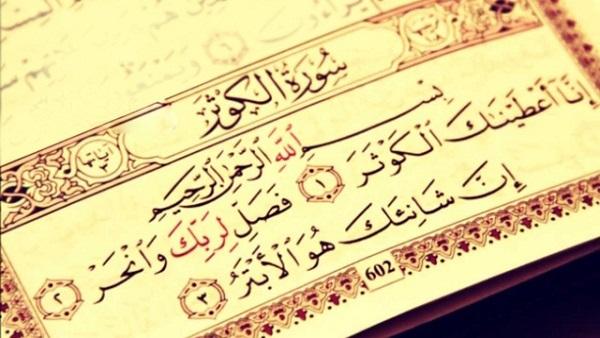 سُورَةُ الكَوْثَرِ
بِسْمِ اللَّهِ الرَّحْمَٰنِ الرَّحِيمِ
إِنَّا أَعْطَيْنَاكَ الْكَوْثَرَ ١ فَصَلِّ لِرَبِّكَ وَانْحَرْ ٢
إِنَّ شَانِئَكَ هُوَ الْأَبْتَرُ ٣
602